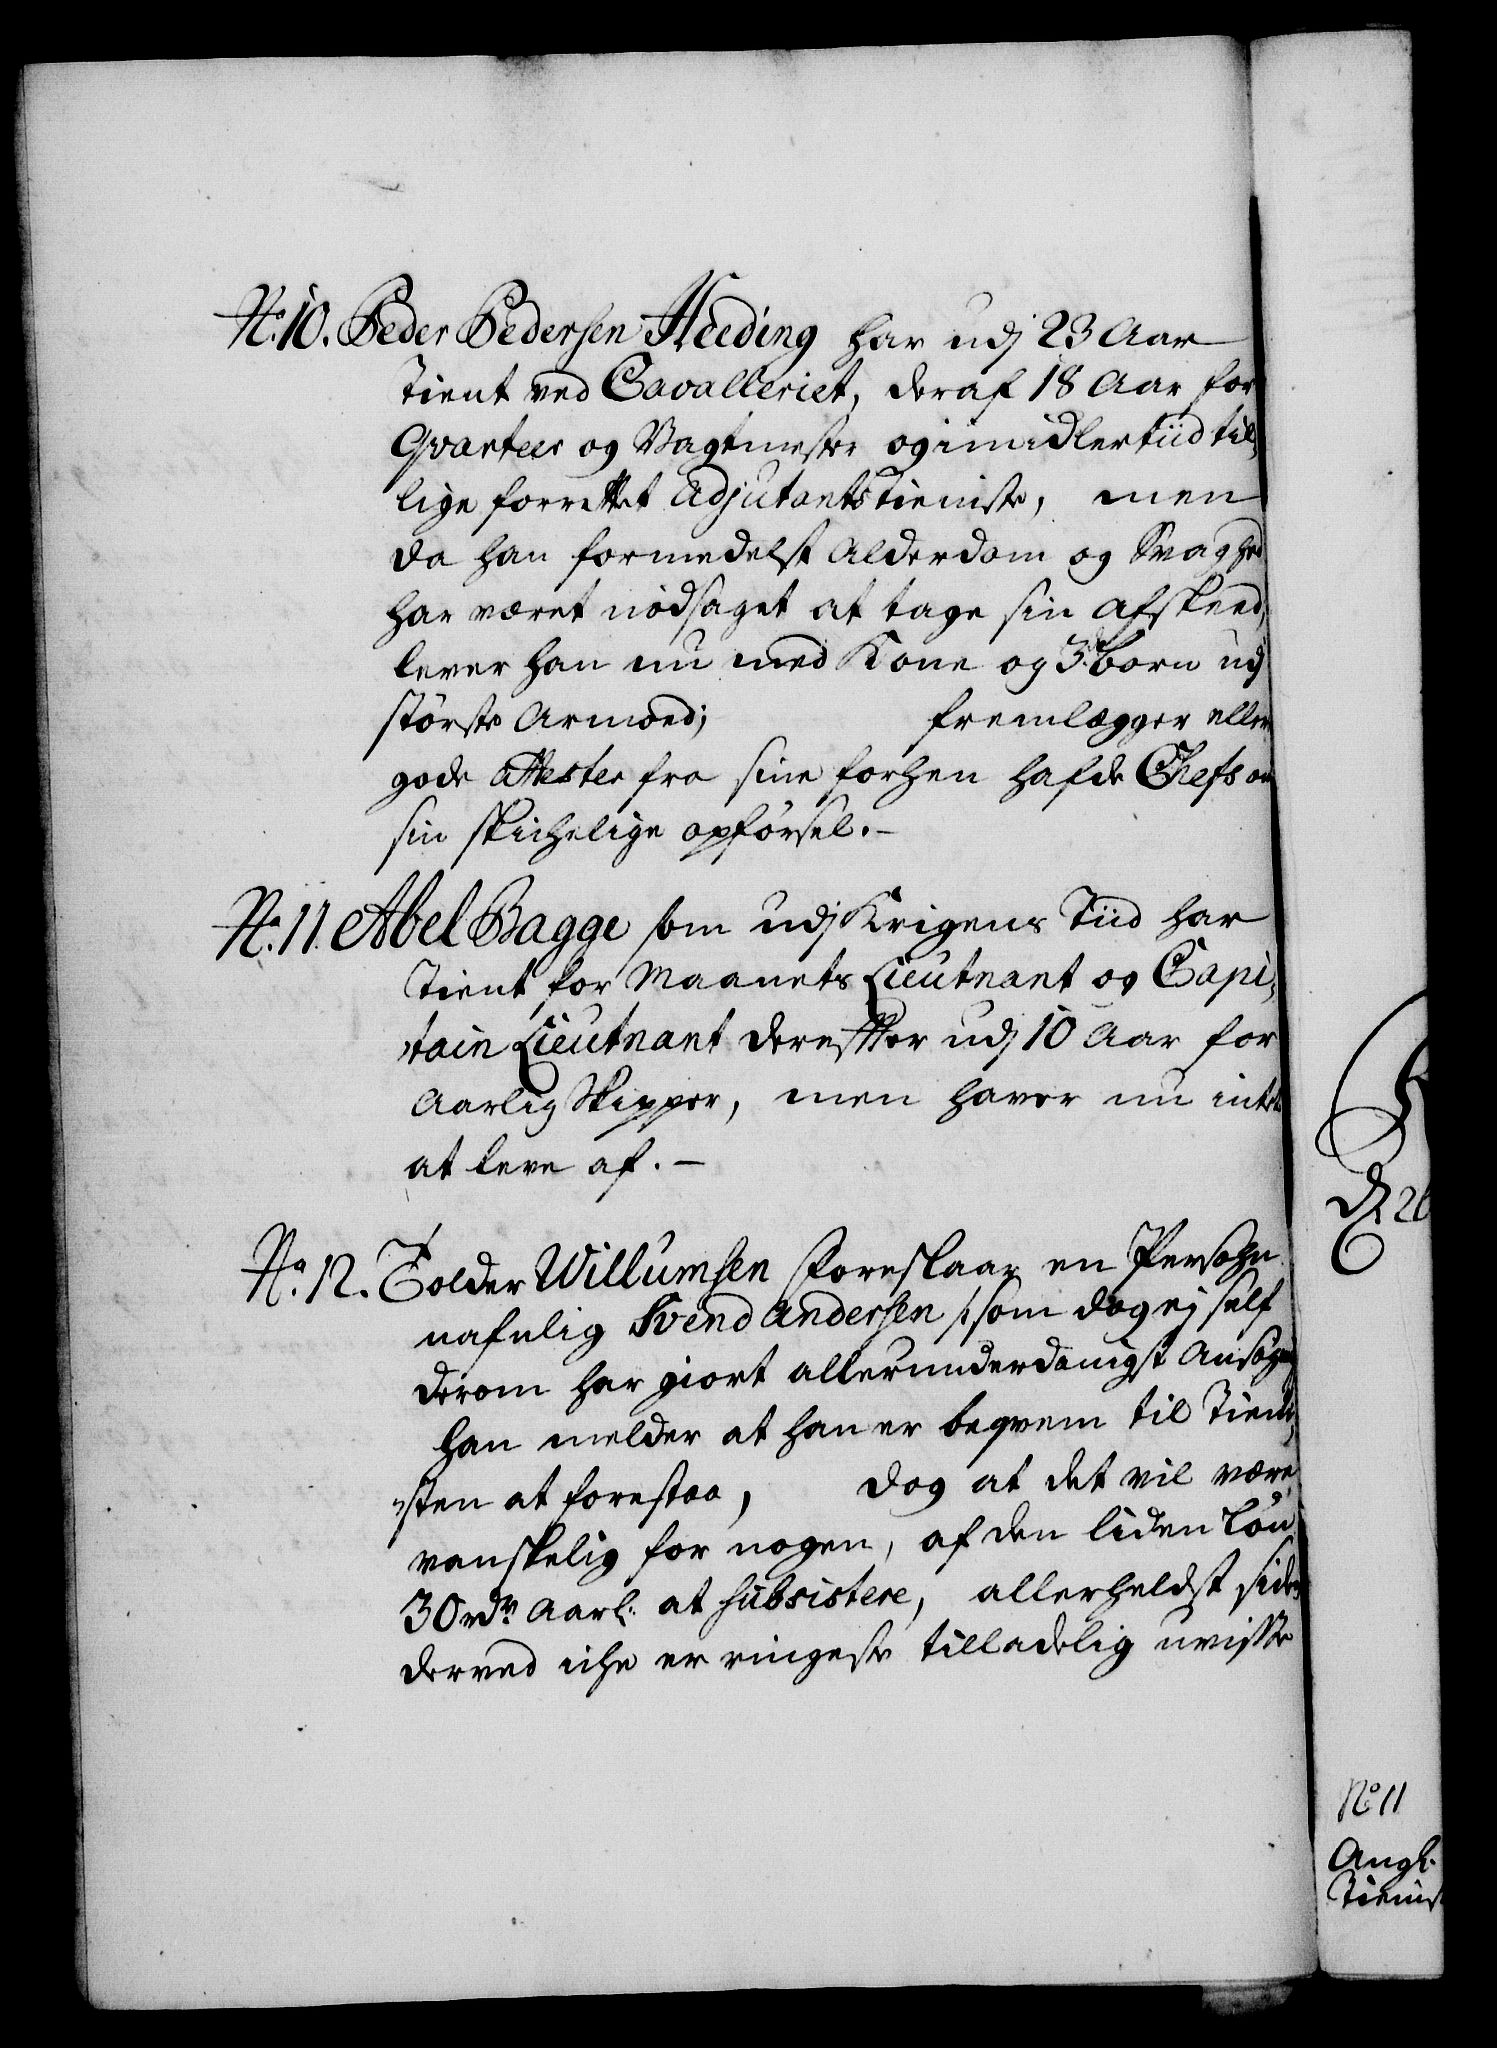 No. 10. Peder Pedersen Heeding har udj 23 Aar
tient ved Cavalleriet, deraf 18 Aar for
Qvarteer og Vagtmester og imidlertiid til,,
lige forrettet Adjutants tieniste, men
da han formedelst Alderdom og Svaghed
har været nødsaget at tage sin Afskeed,
lever han nu med Kone og 3de børn udj
største Armoed; fremlægger ellers
gode attester fra sine forhen hafde Chefs om
sin skichelige opførsel. -
No. 11. Abel Bagge som udj Krigens Tiid har
tient for Maanets Lieutnant og Capi,,
,,tain Lieutnant derefter udj 10 Aar for
Aarlig Skipper, men haver nu intet
at leve af. -
No. 12. Tolder Willumsen foreslaar en Persohn
nafnlig Svend Andersen /: som dog ej self
derom har giort allerunderdanigst Ansøgning
han melder at han er beqvem til Tieni,,
,,sten at forestaa, dog at det vil være
vanskelig for nogen, af den liden Løn
30 rdr. Aarl: at subsistere, allerheldst siden
derved iche er ringeste tilladelig uvisse
No 11
Angl.
Tienist